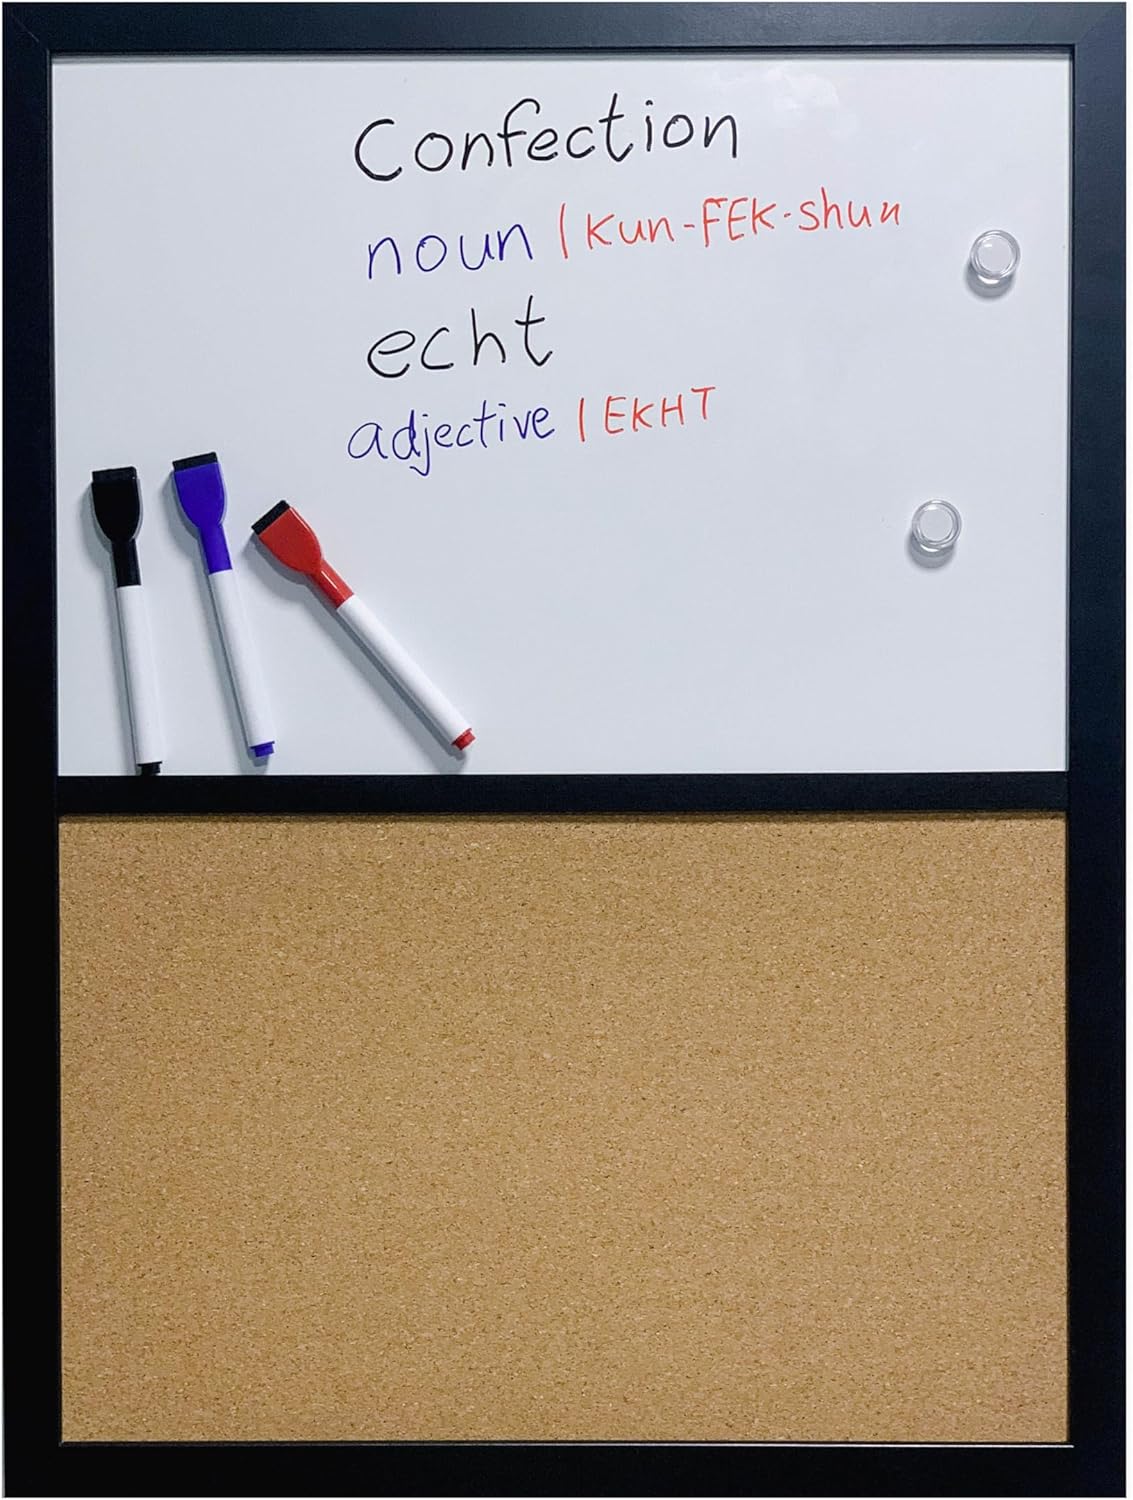 Confection
noun | Kun-FEK-shun
echt
adjective | EKHT